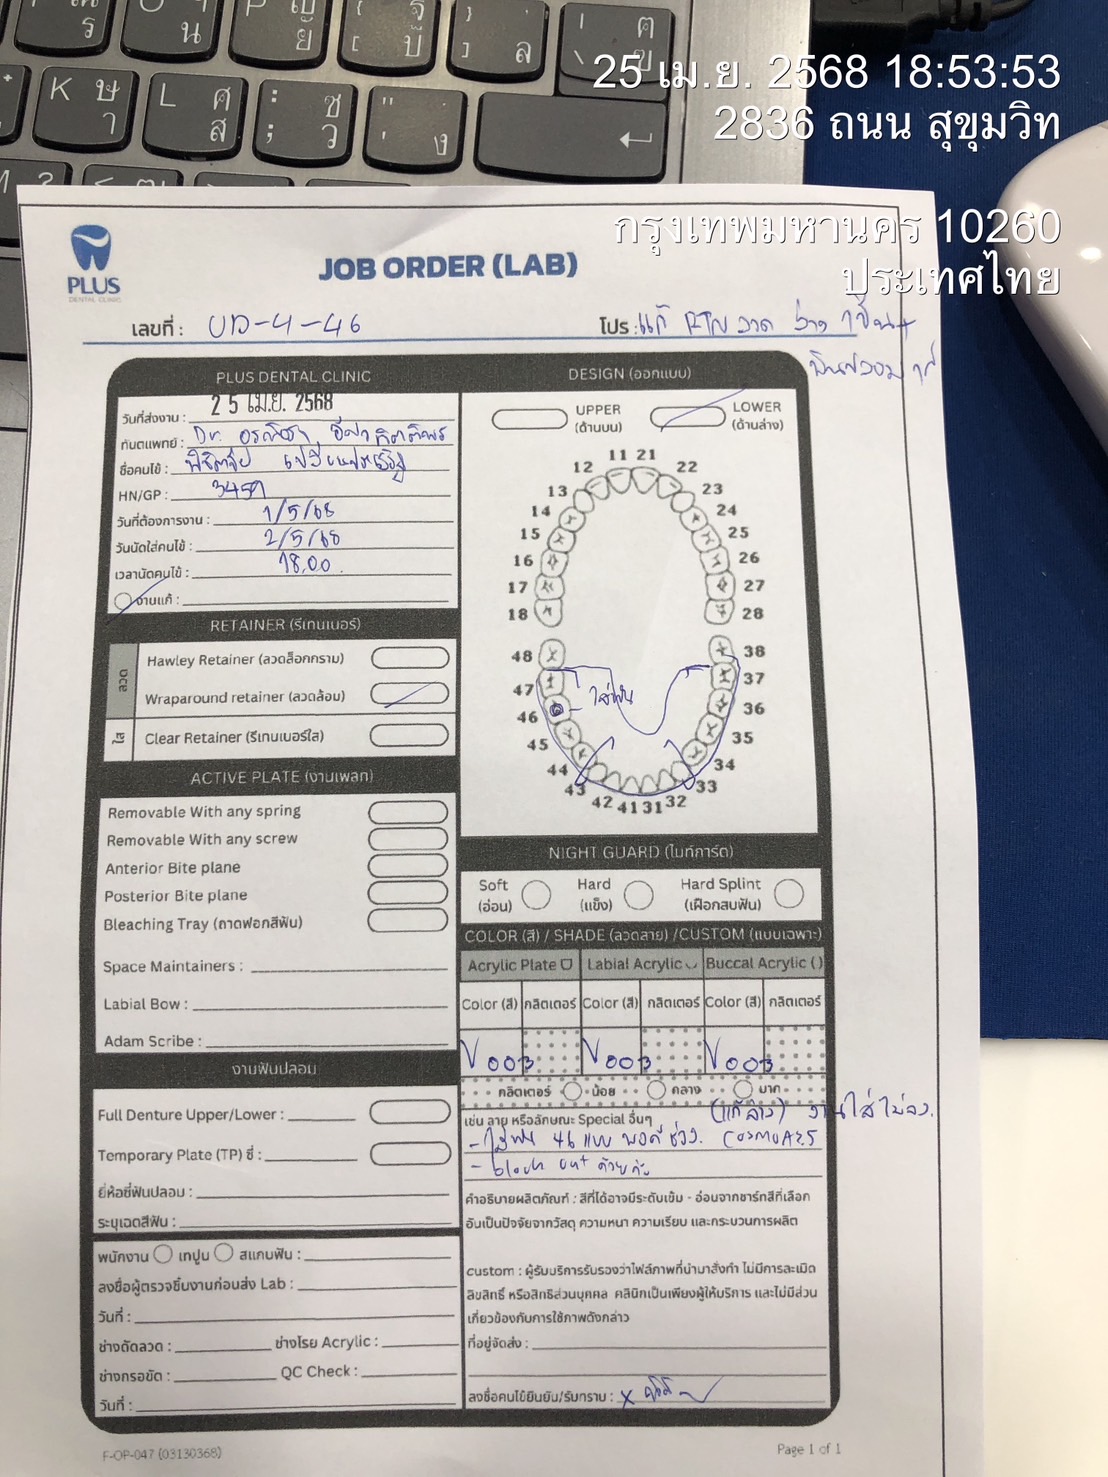 25 เม.ย. 2568 18:53:53
2836 ถนน สุขุมวิท
กรุงเทพมหานคร 10260
ประเทศไทย
PLUS
DENTAL CLINIC
JOB ORDER (LAB)
เลขที่ : UD-4-46
โปร : แก้ RTN ลวด ล่าง 1ชิ้น+
ฟันปลอม 1ซี่
PLUS DENTAL CLINIC
วันที่ส่งงาน : 25 เม.ย. 2568
ทันตแพทย์ : Dr.
ชื่อคนไข้ :
HN/GP : 3457
วันที่ต้องการงาน : 1/5/68
วันนัดใส่คนไข้ : 2/5/68
เวลานัดคนไข้ : 18.00
งานแก้ :
RETAINER (รีเทนเนอร์)
ลวด
Hawley Retainer (ลวดล็อกกราม)
Wraparound retainer (ลวดล้อม)
ใส
Clear Retainer (รีเทนเนอร์ใส)
ACTIVE PLATE (งานเพลท)
Removable With any spring
Removable With any screw
Anterior Bite plane
Posterior Bite plane
Bleaching Tray (ถาดฟอกสีฟัน)
Space Maintainers :
Labial Bow :
Adam Scribe :
งานฟันปลอม
Full Denture Upper/Lower :
Temporary Plate (TP) ซี่ :
ยี่ห้อซี่ฟันปลอม :
ระบุเฉดสีฟัน :
พนักงาน เทปูน สแกนฟัน :
ลงชื่อผู้ตรวจชิ้นงานก่อนส่ง Lab :
วันที่ :
ช่างดัดลวด : ช่างโรย Acrylic :
ช่างกรอขัด : QC Check :
วันที่ :
DESIGN (ออกแบบ)
UPPER
(ด้านบน)
LOWER
(ด้านล่าง)
11 21
12 22
13 23
14 24
15 25
16 26
17 27
18 28
48 38
47 37
46 ใส่ฟัน 36
45 35
44 34
43 33
42 41 31 32
NIGHT GUARD (ไนท์การ์ด)
Soft
(อ่อน)
Hard
(แข็ง)
Hard Splint
(เฝือกสบฟัน)
COLOR (สี) / SHADE (ลวดลาย) /CUSTOM (แบบเฉพาะ)
Acrylic Plate Labial Acrylic Buccal Acrylic ( )
Color (สี) กลิตเตอร์ Color (สี) กลิตเตอร์ Color (สี) กลิตเตอร์
V003 V003 V003
กลิตเตอร์ น้อย กลาง มาก
เช่น ลาย หรือลักษณะ Special อื่นๆ (แก้ล่าง) งานใส่ไม่ลง.
- ใส่ฟัน 46 แบบ พอดีช่อง. COSMO A3.5
- block out ด้วยค่ะ
คำอธิบายผลิตภัณฑ์ : สีที่ได้อาจมีระดับเข้ม - อ่อนจากชาร์ทสีที่เลือก
อันเป็นปัจจัยจากวัสดุ ความหนา ความเรียบ และกระบวนการผลิต
custom : ผู้รับบริการรับรองว่าไฟล์ภาพที่นำมาสั่งทำ ไม่มีการละเมิด
ลิขสิทธิ์ หรือสิทธิส่วนบุคคล คลินิกเป็นเพียงผู้ให้บริการ และไม่มีส่วน
เกี่ยวข้องกับการใช้ภาพดังกล่าว
ที่อยู่จัดส่ง :
ลงชื่อคนไข้ยืนยัน/รับทราบ : x
F-OP-047 (03130368)
Page 1 of 1